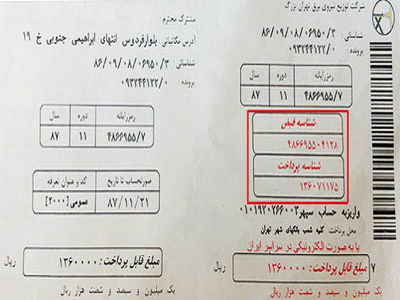 شرکت توزیع نیروی برق تهران بزرگ
شناسائی : ۸۶/۰۹/۰۸/۰۶۹۵۰/۳
پرونده : ۰۹۳۲۴۴۱۲۲/۰
رمزرایانه دوره سال
۴۸۶۶۹۵۵/۷ ۱۱ ۸۷
شناسه قبض
۴۸۶۶۹۵۵۰۴۱۳۸
شناسه پرداخت
۱۳۶۰۷۱۱۷۵
واریزبه حساب سپهر ۰۱۰۱۹۲۰۲۶۶۰۰۳
محل پرداخت : کلیه شعب بانکهای شهر تهران
یا به صورت الکترونیکی در سراسر ایران
مبلغ قابل پرداخت : ۱۳۶۰۰۰۰ ریال
یک میلیون و سیصد و شصت هزار ریال
مشترک محترم :
آدرس مکاتباتی : بلوارفردوس انتهای ابراهیمی جنوبی خ ۱۹
شناسائی : ۸۶/۰۹/۰۸/۰۶۹۵۰/۳
پرونده : ۰۹۳۲۴۴۱۲۲/۰
رمزرایانه دوره سال
۴۸۶۶۹۵۵/۷ ۱۱ ۸۷
صورتحساب تا تاریخ کد و عنوان تعرفه
۸۷/۱۱/۲۱ عمومی [۲۰۰۰]
مبلغ قابل پرداخت : ۱۳۶۰۰۰۰ ریال
یک میلیون و سیصد و شصت هزار ریال